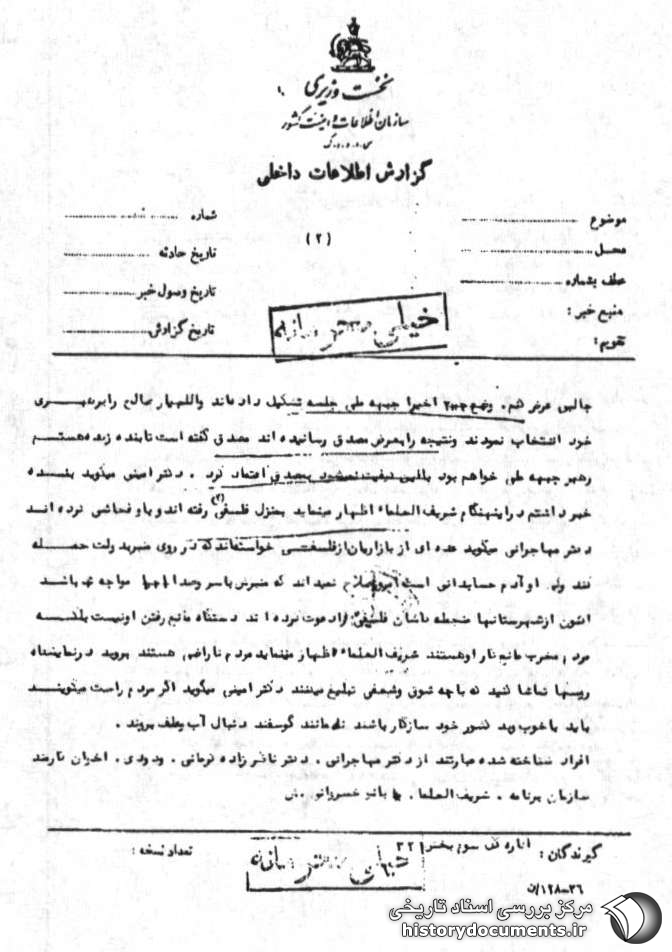 نخست وزیری
سازمان اطلاعات و امنیت کشور
س.ا.و.ا.ک
گزارش اطلاعات داخلی
موضوع
محل
عطف بشماره
منبع خبر :
تقویم :
(۲)
شماره
تاریخ حادثه
تاریخ وصول خبر
تاریخ گزارش
خیلی محرمانه
جالبی عرض کنم. اخیرا جبهه ملی جلسه تشکیل داده‌اند واللهیار صالح را برهبری
خود انتخاب نمودند ونتیجه را بعرض مصدق رسانیده اند مصدق گفته است تابنده زنده هستم
رهبر جبهه ملی خواهم بود باین کیفیت نمیشود بمصدق اعتماد کرد . دکتر امینی میگوید بنده
خبر داشتم دراینهنگام شریف العلماء اظهار مینماید بمنزل فلسفی (۳) رفته اند و باو فحاشی کرده اند
دکتر مهاجرانی میگوید عده ای از بازاریان از فلسفی خواسته‌اند که در روی منبر بدولت حمله
کند ولی او آدم حسابدانی است نمیداند که منبرش باسر وصدا مواجه باشد
اکنون ازشهرستانها فلسفی را دعوت کرده اند دستگاه مانع رفتن اونیست بلکه
مردم مخرب مانع کار او هستند شریف العلماء اظهار مینماید مردم ناراضی هستند بروید درنمایشگاه
روسها تماشا کنید که با چه شوق وشعفی تبلیغ میکنند دکتر امینی میگوید اگر مردم راست میگویند
باید با خوب وبد کشور خود سازگار باشند نه مانند گوسفند دنبال آب وعلف بروند .
افراد شناخته شده عبارتند از دکتر مهاجرانی . دکتر ناظرزاده کرمانی . ودودی . اخوان کارمند
سازمان برنامه . شریف العلماء .
گیرندگان : اداره کل سوم بخش ۳۲۱
تعداد نسخه :
خیلی محرمانه
۳۶-۱۲۸/ن
مرکز بررسی اسناد تاریخی
historydocuments.ir